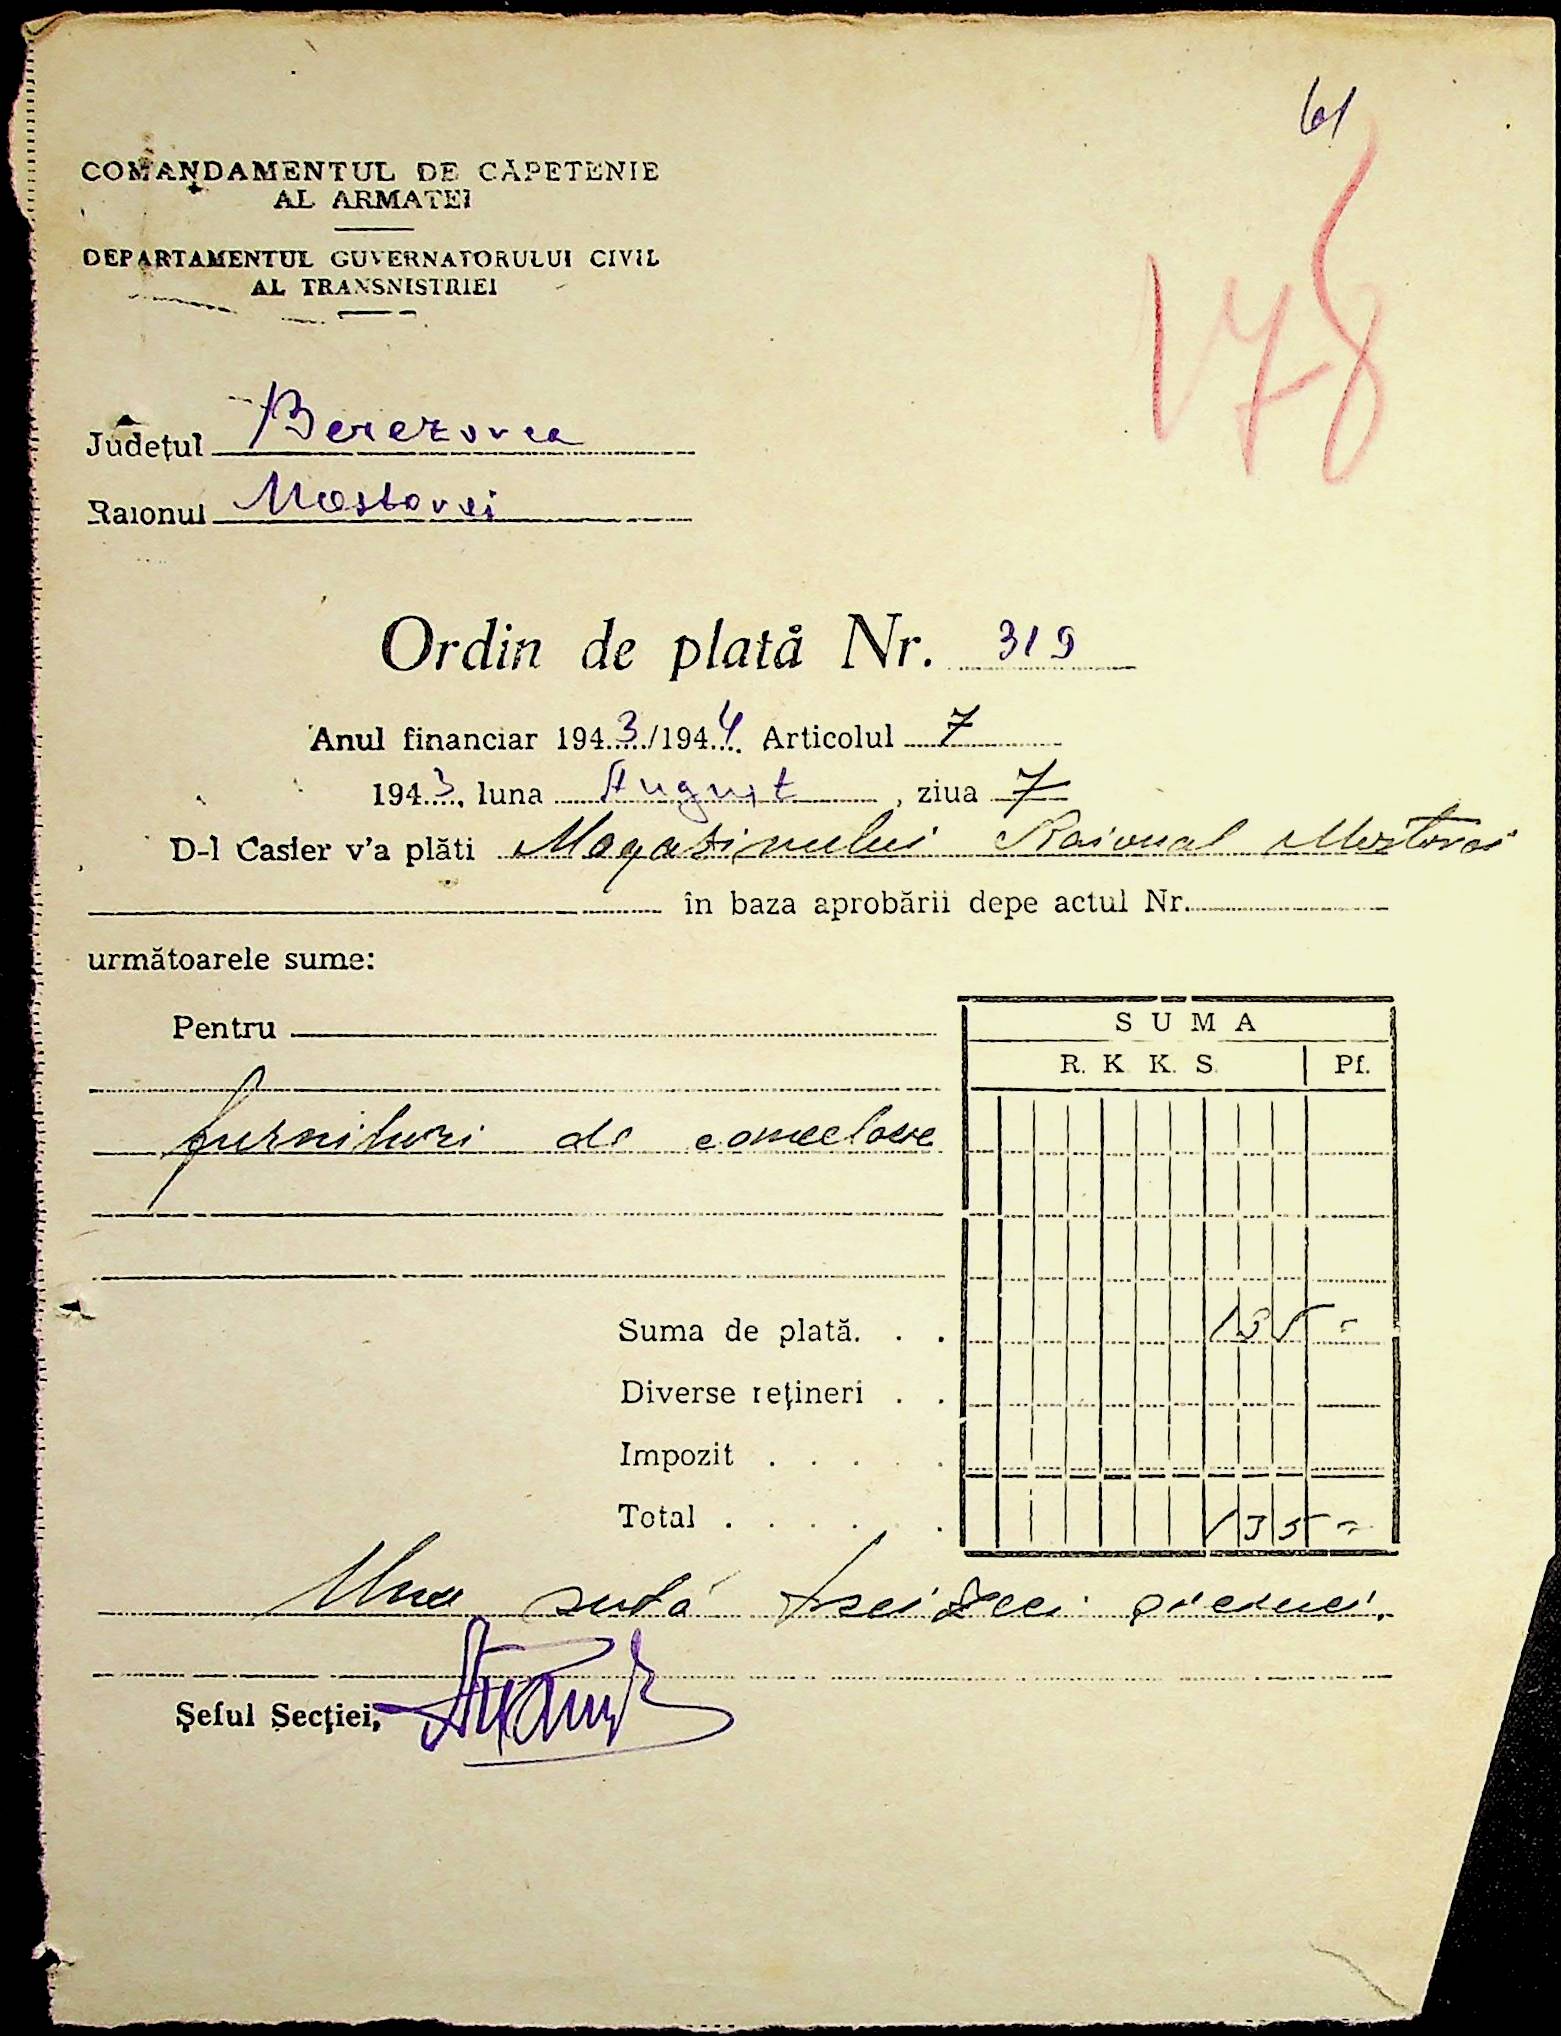 61
178
COMANDAMENTUL DE CĂPETENIE
AL ARMATEI
DEPARTAMENTUL GUVERNATORULUI CIVIL
AL TRANSNISTRIEI
Județul Berezovca
Raionul Mostovoi
Ordin de plată Nr. 319
Anul financiar 1943/1944 Articolul 7
1943, luna August, ziua 7
D-l Casier v'a plăti Magazinului Raional Mostovoi
în baza aprobării depe actul Nr.
următoarele sume:
Pentru
SUMA
R. K K. S. Pf.
furnituri de
Suma de plată. . . 135 =
Diverse rețineri . .
Impozit . . . . .
Total . . . . . . 135 =
Una sută treizeci și cinci.
Șeful Secției,